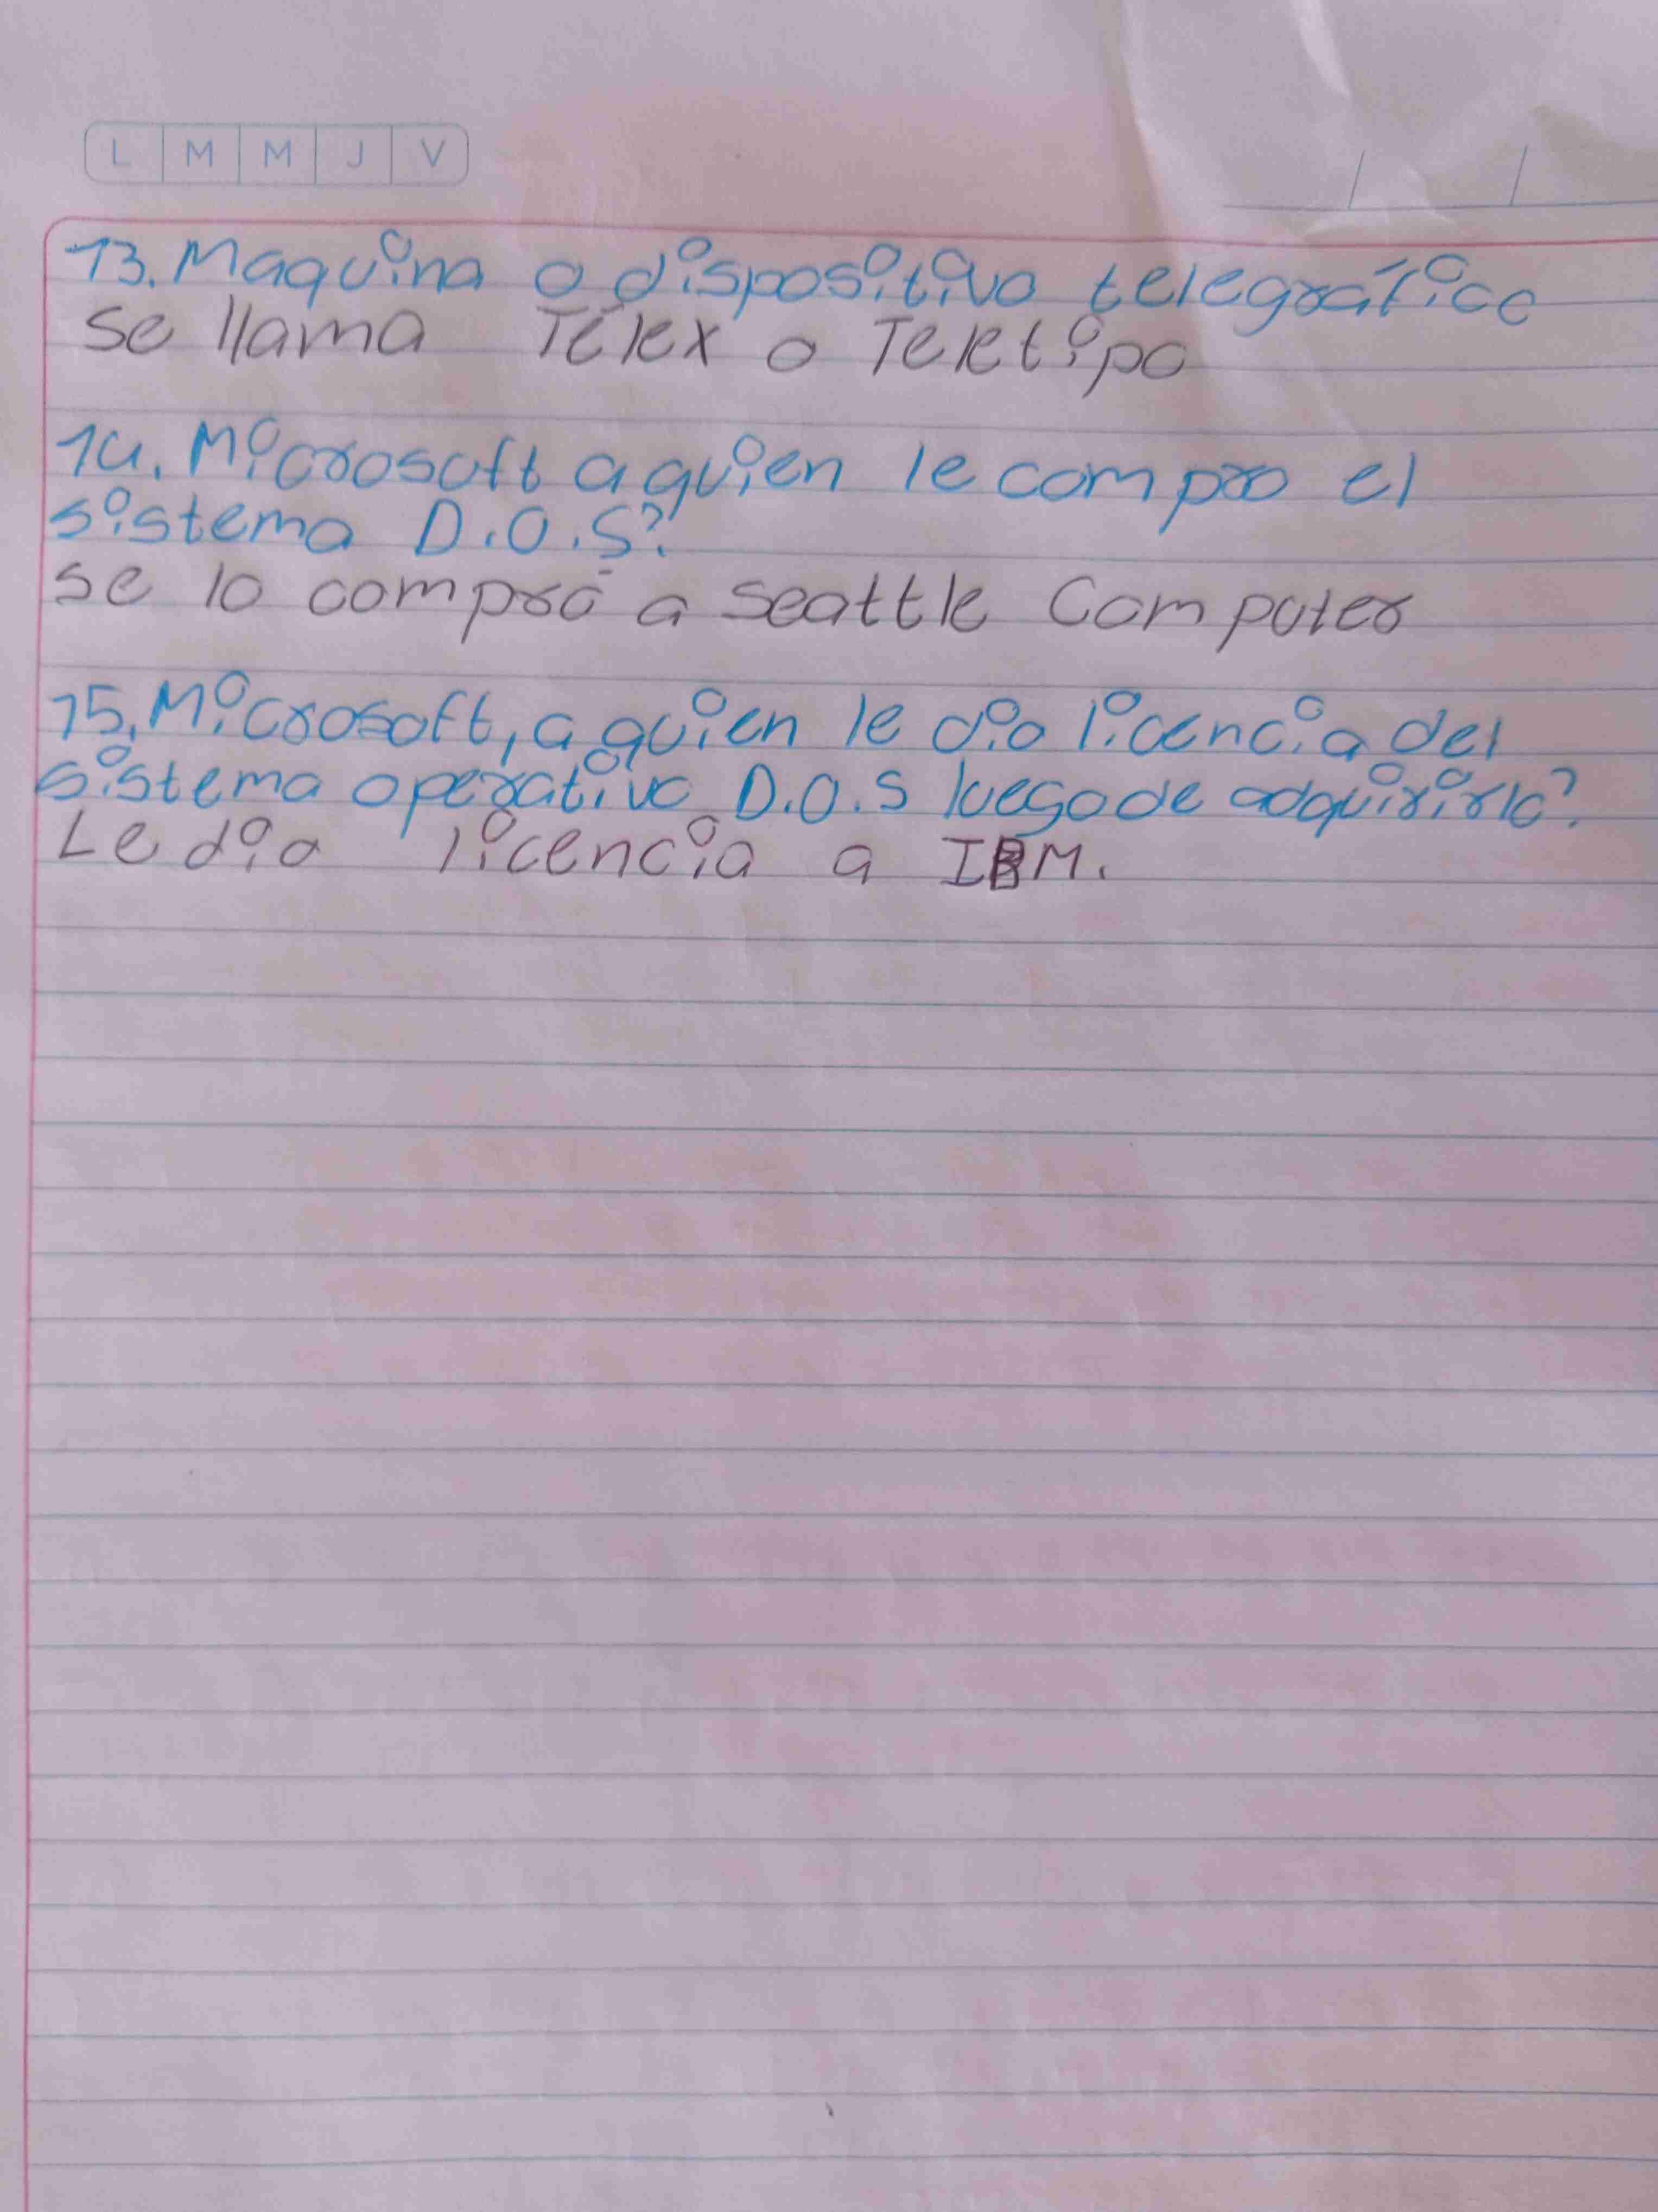 L M M J V
13. Maquina o dispositivo telegráfico
se llama Télex o Teletipo
14. Microsoft a quien le compro el
sistema D.O.S?
se lo compró a seattle Computer
15. Microsoft, a quien le dio licencia del
sistema operativo D.O.S luego de adquirirlo?
Le dio licencia a IBM.